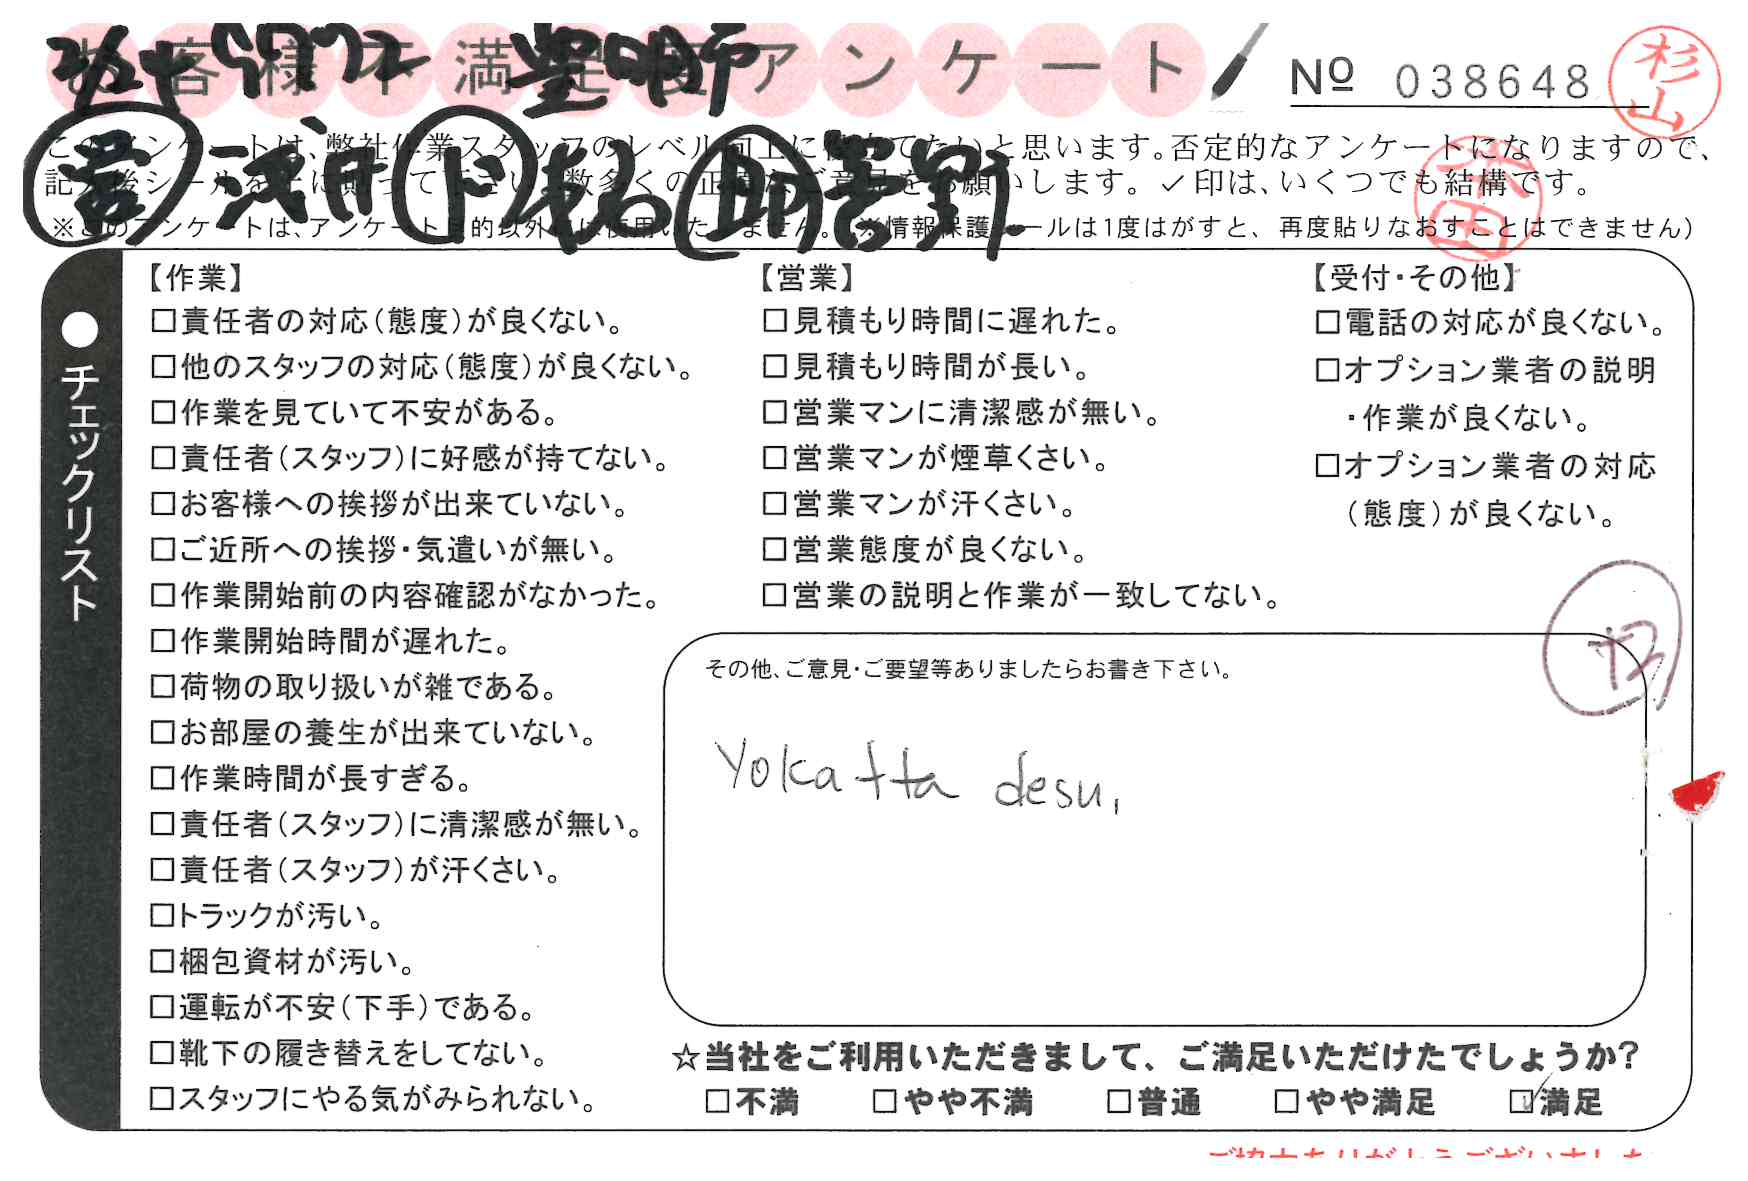 お客様不満足度アンケート
№ 038648
杉山
このアンケートは、弊社作業スタッフのレベル向上に役立てたいと思います。否定的なアンケートになりますので、
記入後シールを上に貼って下さい。数多くの正直なご意見をお願いします。✓印は、いくつでも結構です。
※このアンケートは、アンケート目的以外には使用いたしません。(※情報保護シールは1度はがすと、再度貼りなおすことはできません)
営 浅井 ド 助 吉野
●チェックリスト
【作業】
□責任者の対応(態度)が良くない。
□他のスタッフの対応(態度)が良くない。
□作業を見ていて不安がある。
□責任者(スタッフ)に好感が持てない。
□お客様への挨拶が出来ていない。
□ご近所への挨拶・気遣いが無い。
□作業開始前の内容確認がなかった。
□作業開始時間が遅れた。
□荷物の取り扱いが雑である。
□お部屋の養生が出来ていない。
□作業時間が長すぎる。
□責任者(スタッフ)に清潔感が無い。
□責任者(スタッフ)が汗くさい。
□トラックが汚い。
□梱包資材が汚い。
□運転が不安(下手)である。
□靴下の履き替えをしてない。
□スタッフにやる気がみられない。
【営業】
□見積もり時間に遅れた。
□見積もり時間が長い。
□営業マンに清潔感が無い。
□営業マンが煙草くさい。
□営業マンが汗くさい。
□営業態度が良くない。
□営業の説明と作業が一致してない。
【受付・その他】
□電話の対応が良くない。
□オプション業者の説明
・作業が良くない。
□オプション業者の対応
(態度)が良くない。
その他、ご意見・ご要望等ありましたらお書き下さい。
Yokatta desu,
☆当社をご利用いただきまして、ご満足いただけたでしょうか?
□不満 □やや不満 □普通 □やや満足 ☑満足
ご協力ありがとうございました